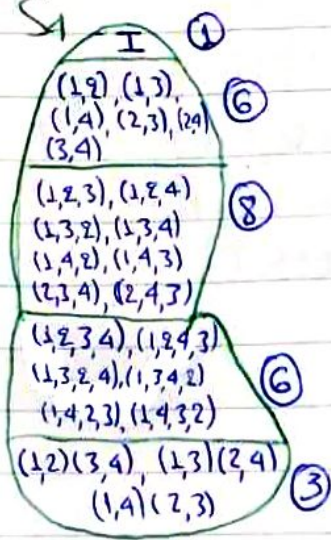 I ①
(1,2), (1,3), ⑥
(1,4), (2,3), (2,4)
(3,4)
(1,2,3), (1,2,4) ⑧
(1,3,2), (1,3,4)
(1,4,2), (1,4,3)
(2,3,4), (2,4,3)
(1,2,3,4), (1,2,4,3)
(1,3,2,4), (1,3,4,2) ⑥
(1,4,2,3), (1,4,3,2)
(1,2)(3,4), (1,3)(2,4) ③
(1,4)(2,3)